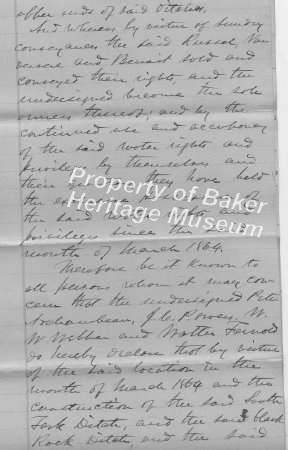 upper ends of said ditches,
And whereas by virtue of sundry
conveyances the said Russel, Van
and Benoit sold and
conveyed their rights and the
undersigned become the sole
owners thereof, and by the
continued use and
of the said water rights and
privileges by themselves and
their they have held
the
the said water and
privileges since the
month of March 1864.
Therefore be it known to
all persons whom it may con-
cern that the undersigned Peter
Archambeau, J. C. P. W.
W. Webber and Walter
do hereby declare that by virtue
of the said location in the
month of March 1864 and the
construction of the said South
Fork Ditch, and the said black
Rock Ditch, and the said
Property of Baker
Heritage Museum